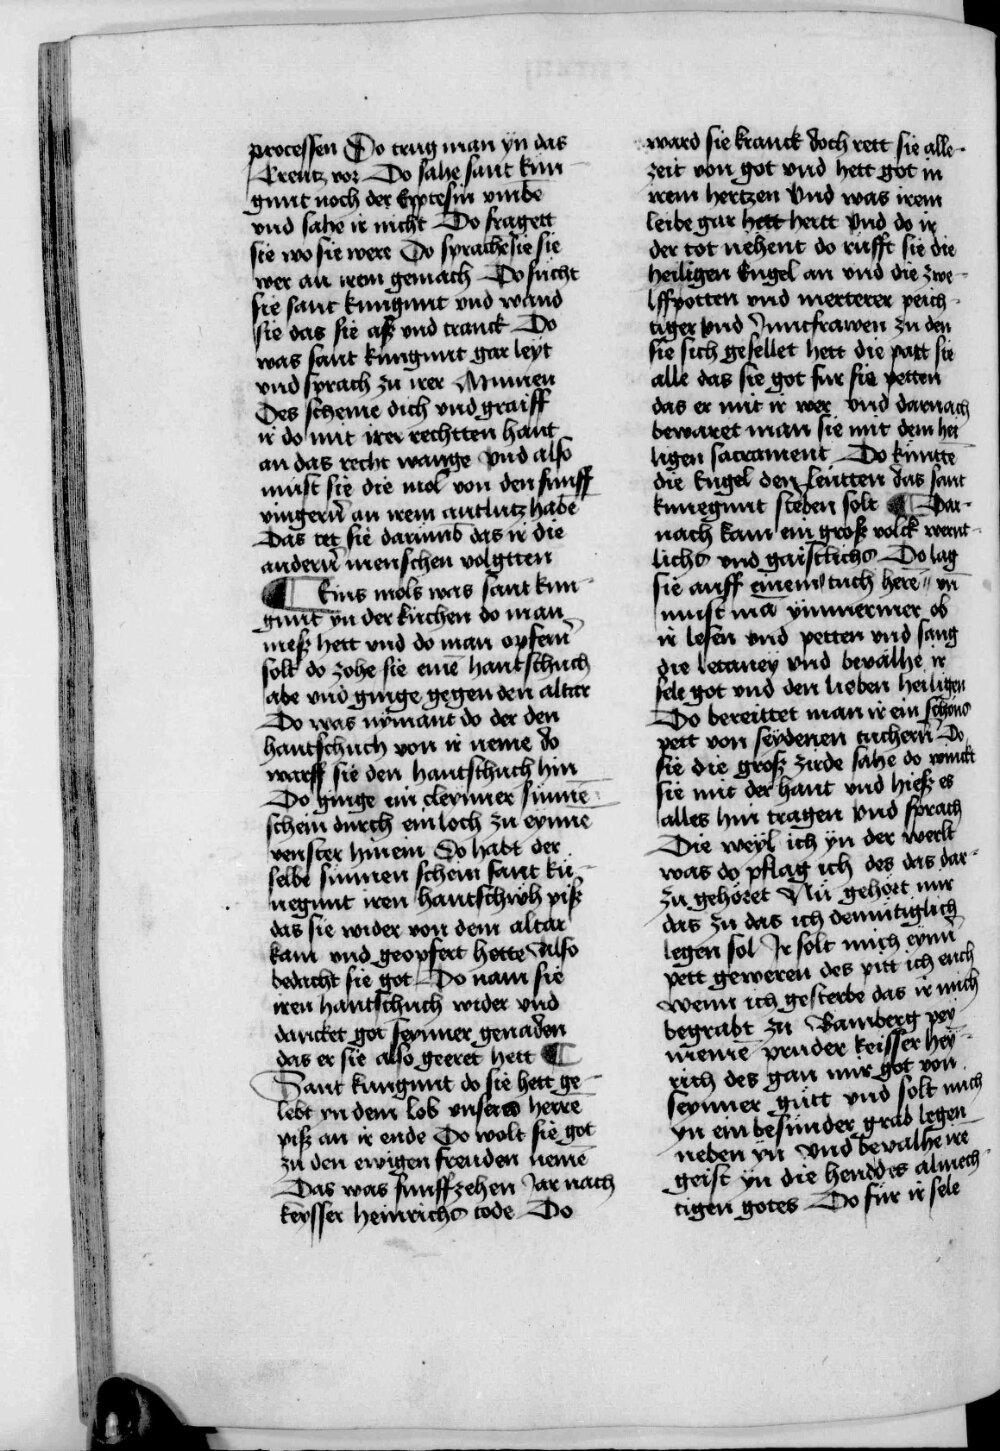 processen Do trug man yn das
Creutz vor Do sahe sant kün-
gunt noch der Eptesin vmbe
vnd sahe ir nicht Do fragett
sie wo sie were Do sprache sie sie
wer an irem gemach Do sücht
sie sant kungunt vnd vand
sie das sie aß vnd tranck Do
was sant kungunt gar leyt
vnd sprach zu irer Mumen
Des scheme dich vnd graiff
ir do mit irer rechtten hant
an das recht wange vnd also
must sie die mol von den funff
vingerñ an irem antlutz habē
Das tet sie darumb das ir die
anderñ menschen volgtten
¶ Eins mols was sant kun-
gunt yn der kirchen do man
meß hett vnd do man opferñ
solt do zohe sie einē hantschuch
abe vnd ginge gegen den altar
Do was nymant do der den
hantschuch von ir neme do
warff sie den hantschuch hin
Do ginge ein cleyner sunnē
schein durch ein loch zu eynnē
venster hinein Do habt der
selbe sunnen schein sant kü-
negunt iren hantschuh piß
das sie wider von dem altar
kam vnd geopfert hette Also
bedacht sie got Do nam sie
iren hantschuch wider vnd
dancket got seynner genaden
das er sie also geeret hett ¶
Sant kungunt do sie hett ge-
lebt yn dem lob vnsers herrē
piß an ir ende Do wolt sie got
zu den ewigen freuden nemē
Das was funffzehen Jar nach
keysser heinrichs tode Do
ward sie kranck doch rett sie alle-
zeit von got vnd hett got in
irem hertzen Vnd was irem
leibe gar hett hertt Vnd do ir
der tot nehent do rüfft sie die
heiligen Engel an vnd die zwe-
lffpotten vnd merterer peich-
tiger vnd Junckfrawen zu den
sie sich gesellet hett die patt sie
alle das sie got fur sie petten
das er mit ir wer vnd darnach
bewaret man sie mit dem hei
ligen sacrament Do kuntte
die Engel den leutten das sant
kunegunt sterben solt ¶ Dar-
nach kam ein groß volck wernt-
lichs vnd gaistlichs Do lag
sie auff einem tuch here vñ
must mā ymmermer ob
ir lesen vnd petten vnd sang
die letaney vnd bevalhe ir
sele got vnd den lieben heiligen
Do bereittet man ir ein schons
pett von seydenen tucherñ Do
sie die groß zirde sahe do winckt
sie mit der hant vnd hieß es
alles hin tragen vnd sprach
Die weyl ich yn der werlt
was do pflag ich des das dar-
zu gehöret Nü gehört mir
das zu das ich demütiglich
legen sol Ir solt mich eynñ
pett geweren des pitt ich euch
wenn ich gesterbe das ir mich
begrabt zu Bamberg pey
meinē pruder keisser hey-
rich des gan mir got von
seynner gütt vnd solt mich
yn ein besunder grab legen
neben yn Vnd bevalhe irē
geist yn die hend des almech-
tigen gotes Do für ir sele